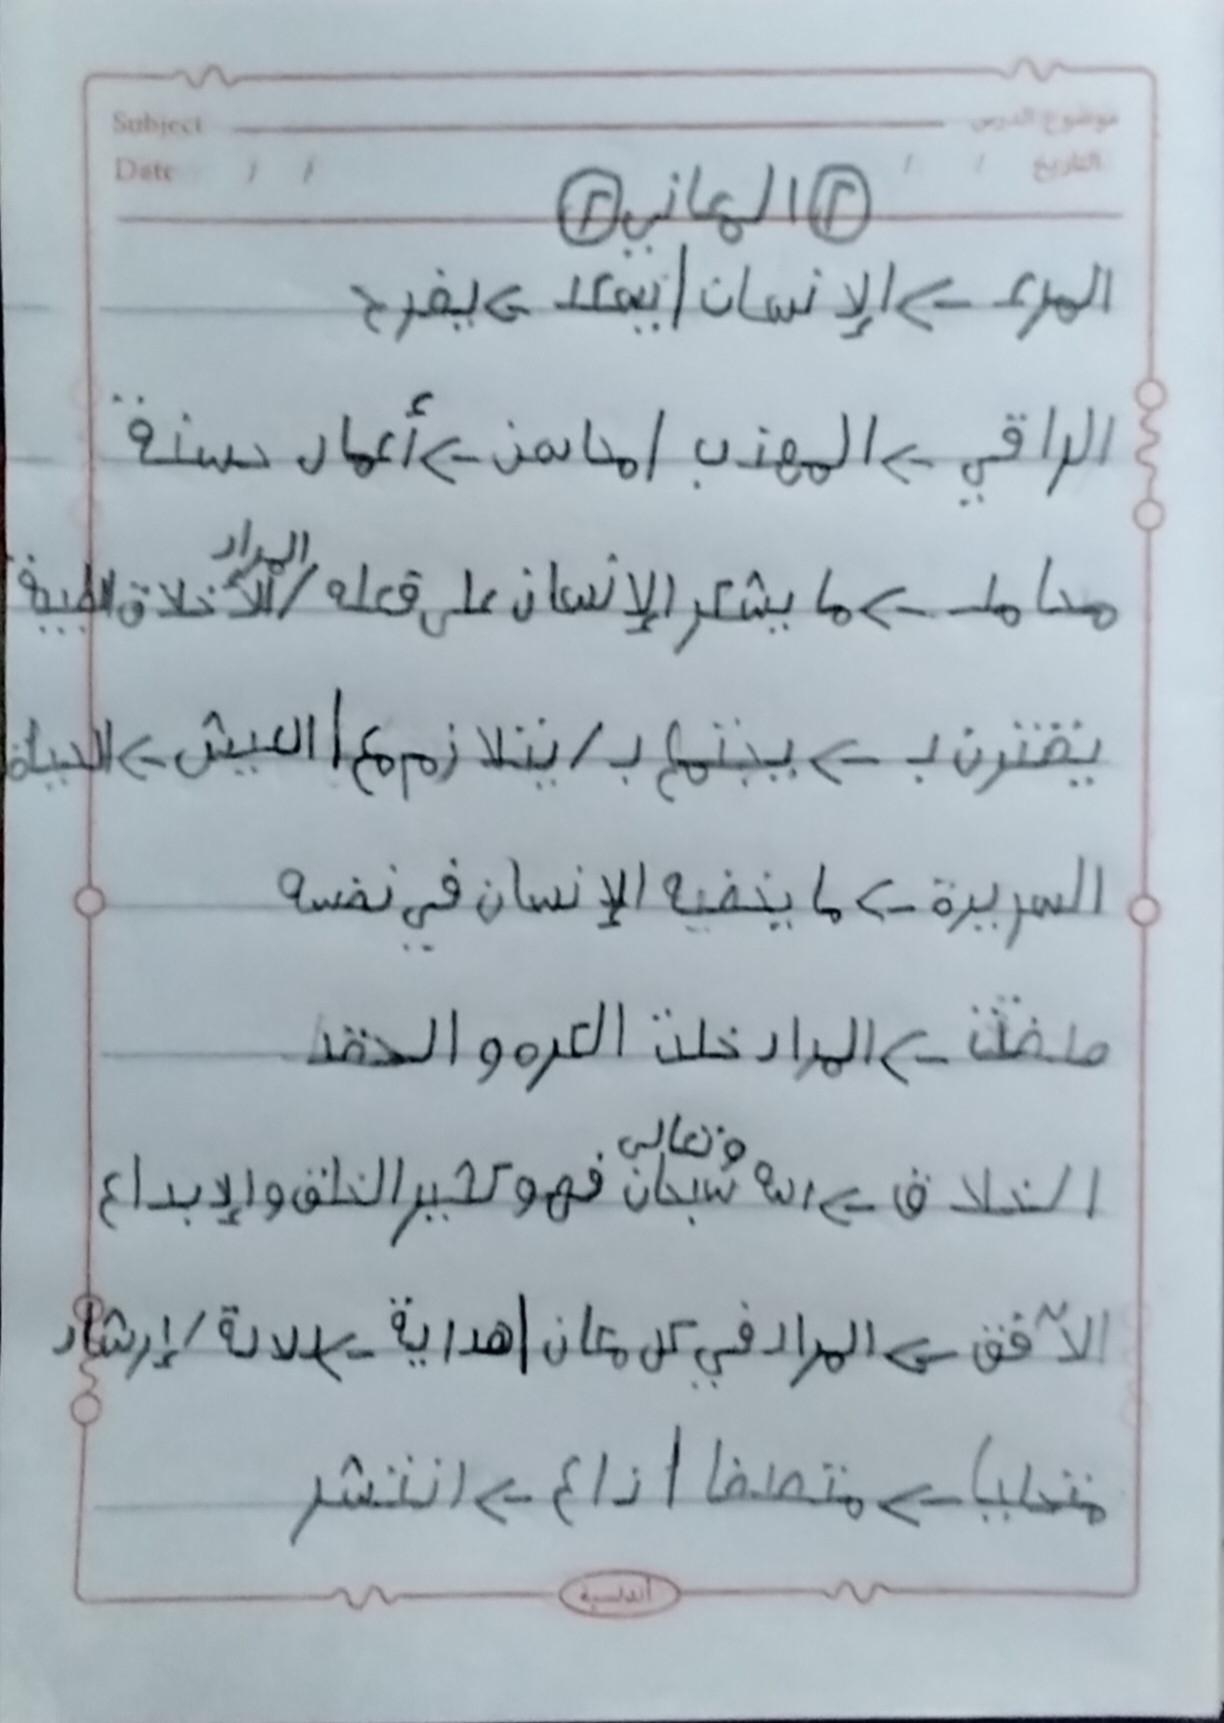 Subject موضوع الدرس
Date / / التاريخ / /
٢ المعاني ٢
المرء -> الإنسان / يسعد -> يفرح
الراقي -> المهذب / محاسن -> أعمال حسنة
محامد -> ما يشكر الإنسان على فعله / المراد الأخلاق الطيبة
يقترن بـ -> يجتمع بـ / يتلازم مع / العيش -> الحياة
السريرة -> ما يخفيه الإنسان في نفسه
صفت -> المراد خلت الكره والحقد
الخلاق -> الله سبحان وتعالى فهو كثير الخلق والإبداع
الآفق -> المراد في كل مكان / هداية -> دلالة / إرشاد
متحليا -> متصفا / ذاع -> انتشر
أندلسية